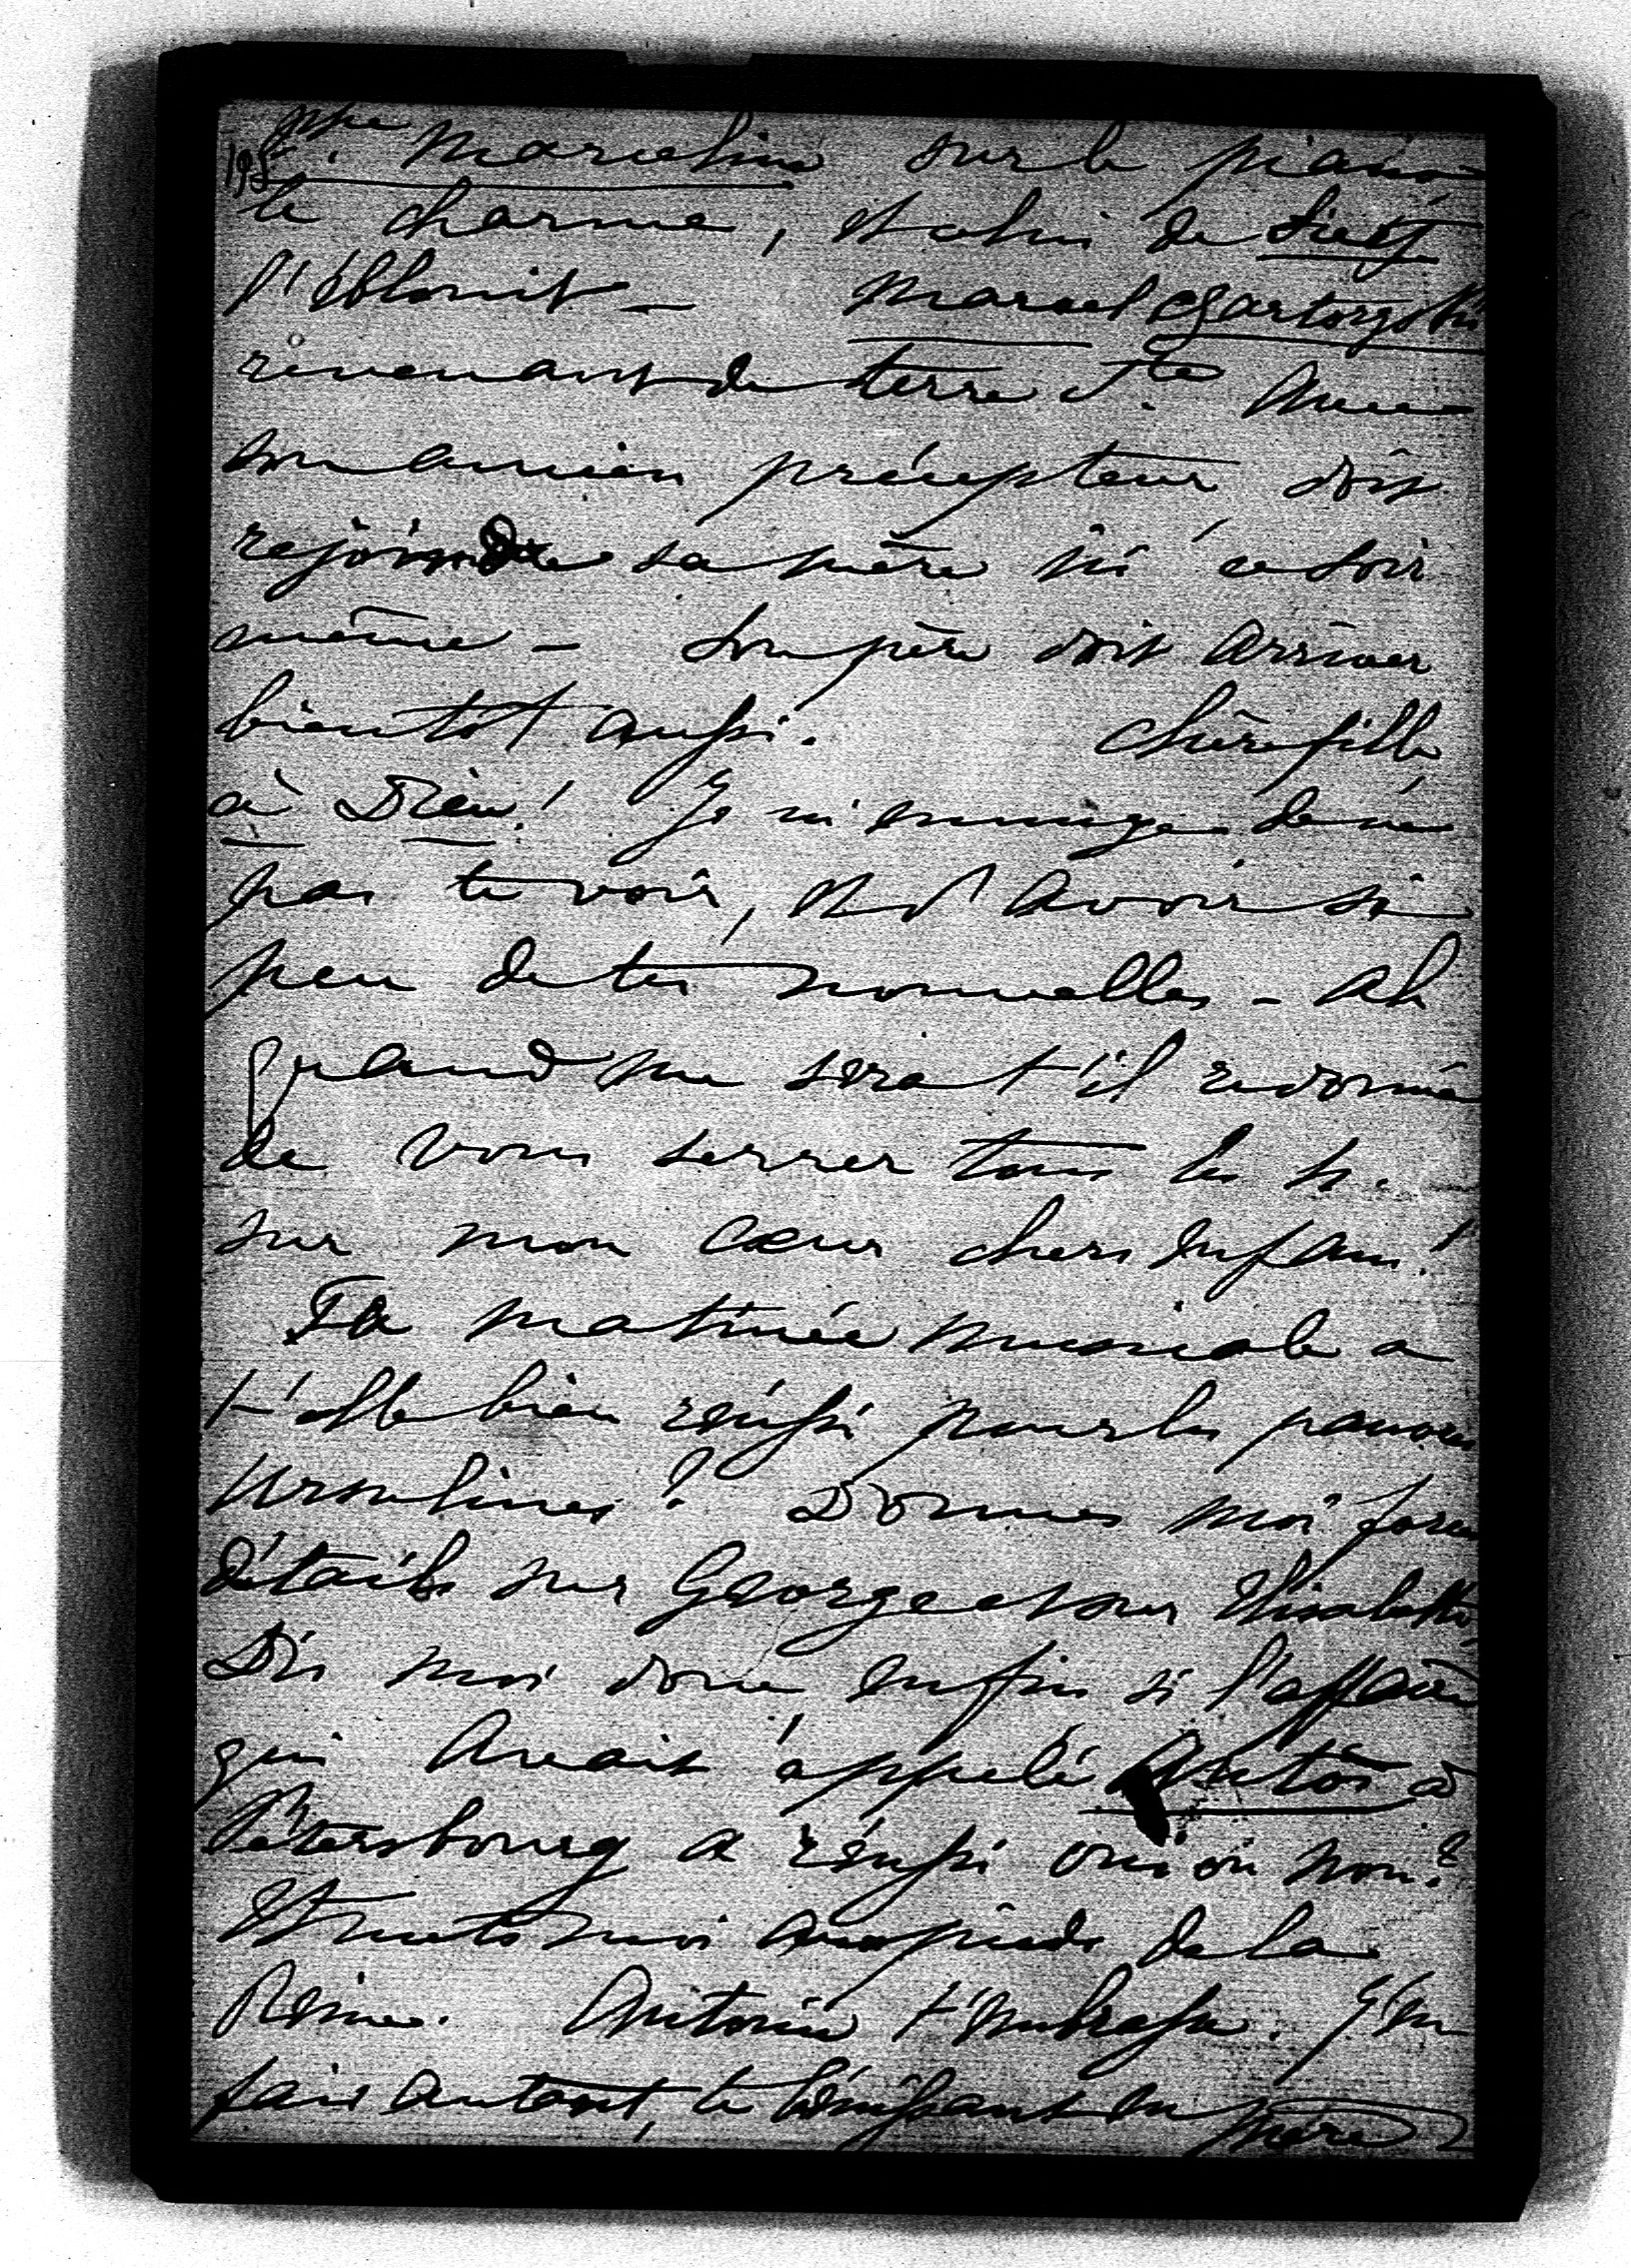 Psse Marceline sur le piano
198
le charme, et celui de Liszt
l'éblouit — Marcel Czartoryski
revenant de terre Ste avec
son ancien précepteur doit
rejoindre sa mère ici ce soir
même — Son père doit arriver
bientot aussi. Chère fille
à Dieu! Je m'ennuye de ne
pas te voir, et d'avoir si
peu de tes nouvelles — Ah
quand me sera t'il redonné
de vous serrer tous les
sur mon cœur chers enfans!
Ta matinée musicale a
t'elle bien réussi pour les pauvres
Ursulines? Donnes moi force
détails sur George et sur Elisabeth
Dis moi donc enfin si l'affaire
qui avait appelé à
Pétersbourg a réussi oui ou non?
Et mets moi aux pieds de la
Reine. Antonin t'embrasse. J'en
fais autant, te bénissant en mère